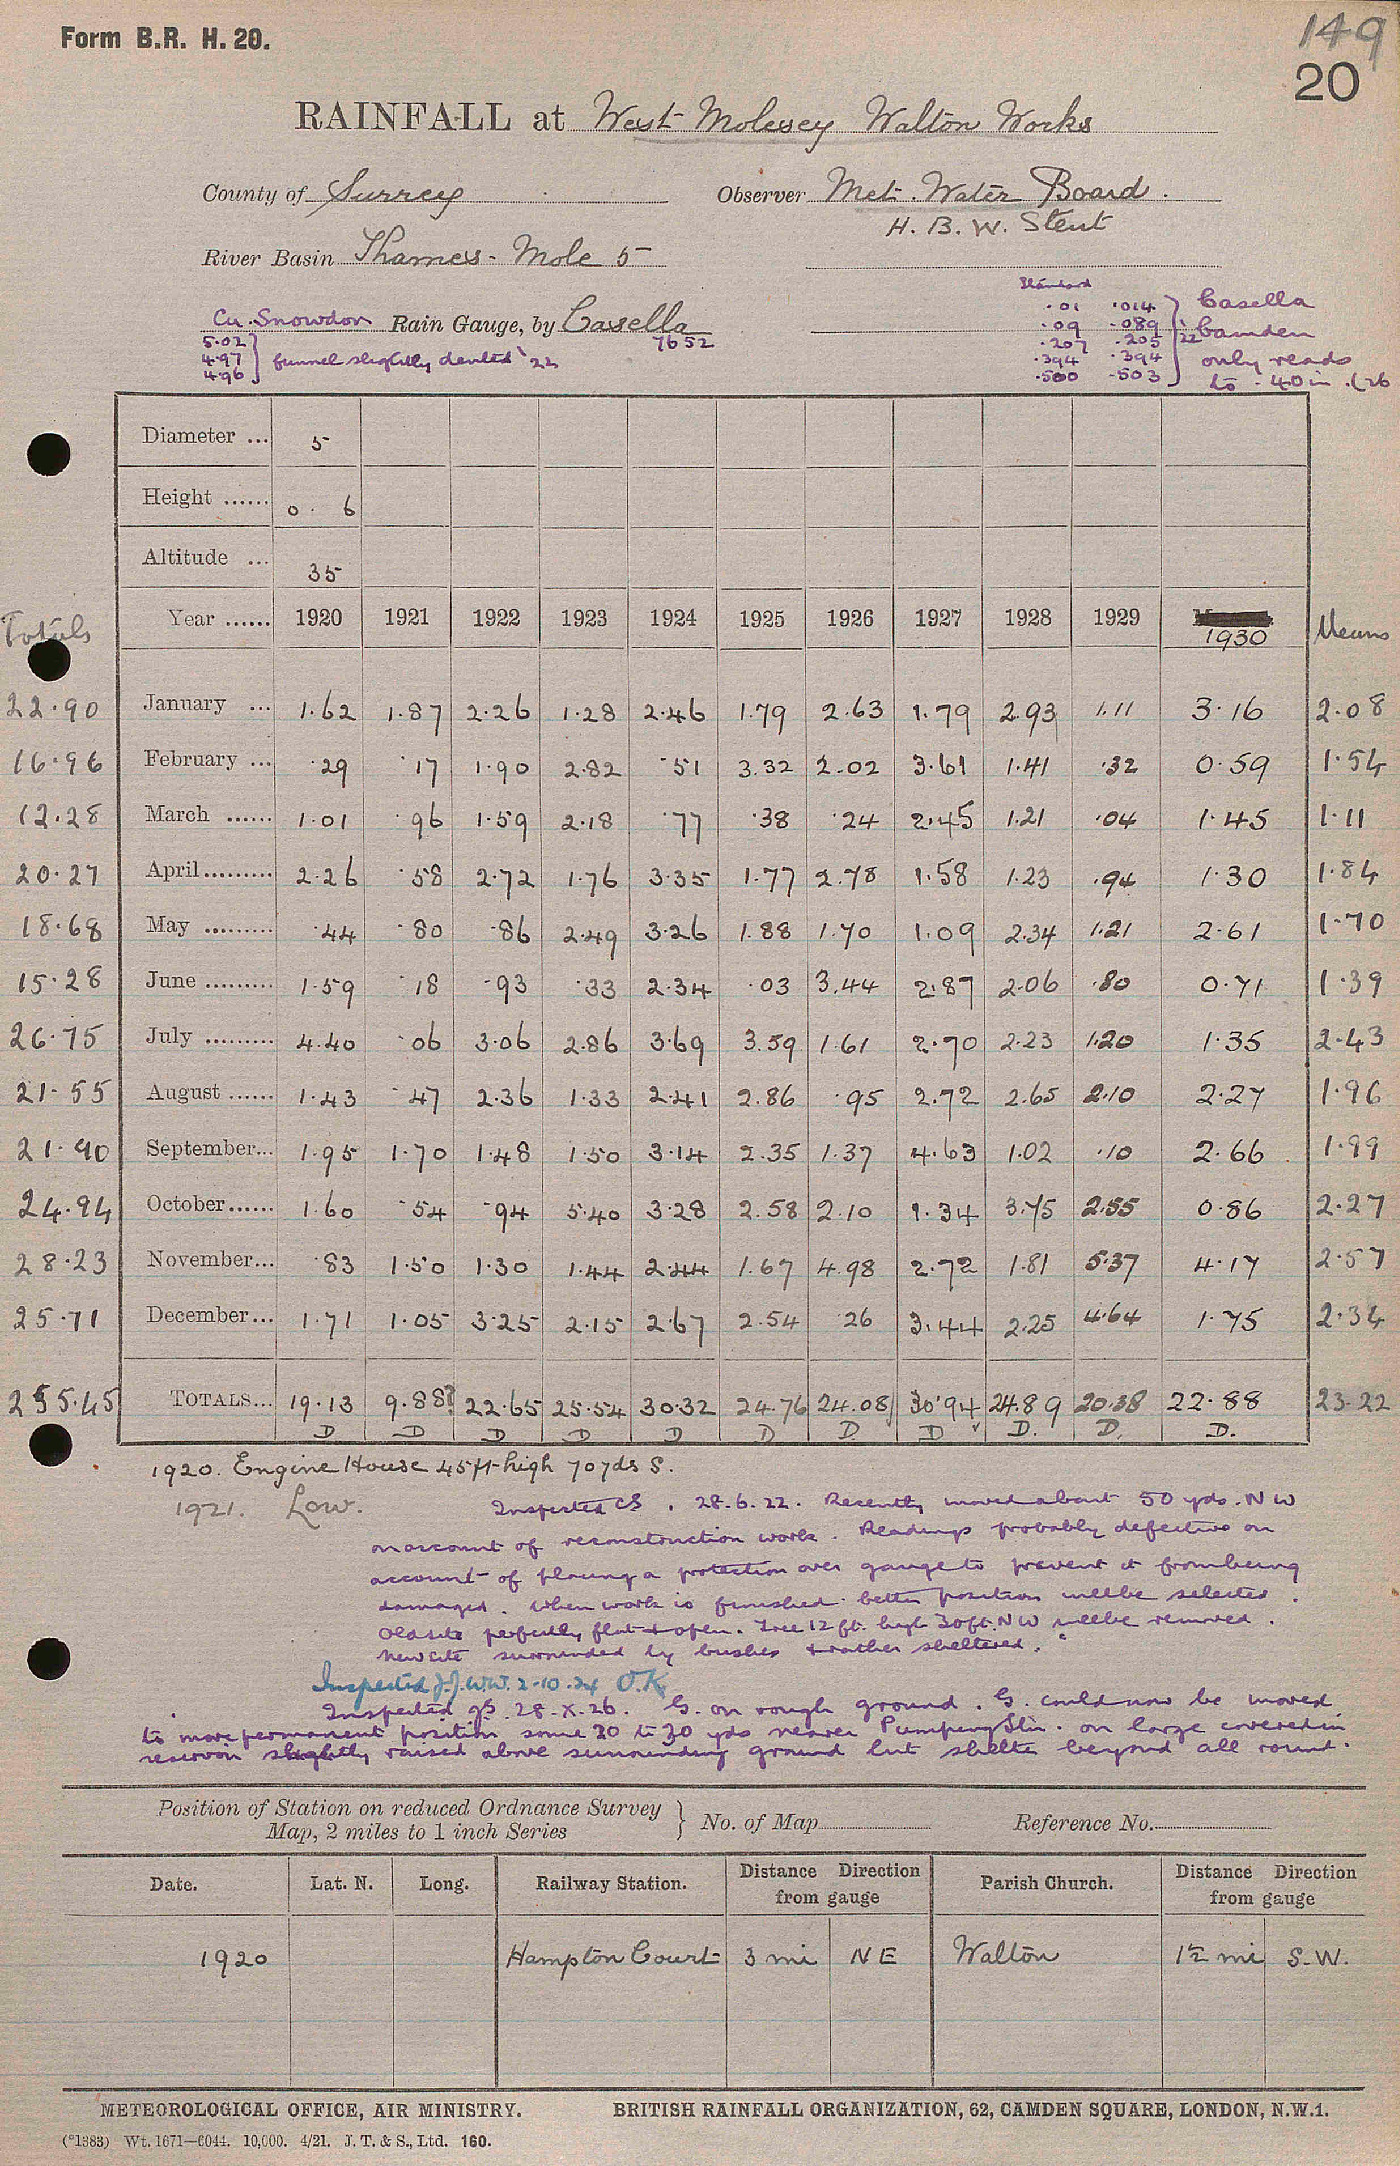 Form B.R. H. 20.
149
20
RAINFALL at West Molesey Walton Works
County of Surrey Observer Met. Water Board.
H. B. W. Stent
River Basin Thames - Mole 5
Cu. Snowdon Rain Gauge, by Casella
7652
5.02
4.97
4.96
funnel slightly dented '22
Standard
.01 .014
.09 .089
.207 .205
.394 .394
.500 .503
'22
Casella
Camden
only reads
to .40 in. (26
Diameter ... 5
Height ...... 0. 6
Altitude ... 35
Totals Year ...... 1920 1921 1922 1923 1924 1925 1926 1927 1928 1929 1930 Means
22.90 January ... 1.62 1.87 2.26 1.28 2.46 1.79 2.63 1.79 2.93 1.11 3.16 2.08
16.96 February ... .29 .17 1.90 2.82 .51 3.32 2.02 3.61 1.41 .32 0.59 1.54
12.28 March ...... 1.01 .96 1.59 2.18 .77 .38 .24 2.45 1.21 .04 1.45 1.11
20.27 April ......... 2.26 .58 2.72 1.76 3.35 1.77 2.78 1.58 1.23 .94 1.30 1.84
18.68 May ......... .44 .80 .86 2.49 3.26 1.88 1.70 1.09 2.34 1.21 2.61 1.70
15.28 June ......... 1.59 .18 .93 .33 2.34 .03 3.44 2.87 2.06 .80 0.71 1.39
26.75 July ......... 4.40 .06 3.06 2.86 3.69 3.59 1.61 2.70 2.23 1.20 1.35 2.43
21.55 August ...... 1.43 .47 2.36 1.33 2.41 2.86 .95 2.72 2.65 2.10 2.27 1.96
21.90 September... 1.95 1.70 1.48 1.50 3.14 2.35 1.37 4.63 1.02 .10 2.66 1.99
24.94 October...... 1.60 .54 .94 5.40 3.28 2.58 2.10 1.34 3.75 2.55 0.86 2.27
28.23 November... .83 1.50 1.30 1.44 2.44 1.67 4.98 2.72 1.81 5.37 4.17 2.57
25.71 December... 1.71 1.05 3.25 2.15 2.67 2.54 .26 3.44 2.25 4.64 1.75 2.34
255.45 TOTALS... 19.13 9.88? 22.65 25.54 30.32 24.76 24.08 30.94 24.89 20.38 22.88 23.22
D D D D D D D D D. D. D.
1920. Engine House 45 ft high 70 yds S.
1921. Low.
Inspected CS. 28.6.22. Recently moved about 50 yds. NW
on account of reconstruction work. Readings probably defective on
account of placing a protection over gauge to prevent it from being
damaged. When work is finished better position will be selected.
Old site perfectly flat & open. Tree 12 ft. high 30 ft. NW will be removed.
New site surrounded by bushes & rather sheltered.
Inspected J.J.W.W. 2-10-24 O.K.
Inspected 28-X-26. G. on rough ground. G. could now be moved
to more permanent position some 20 to 30 yds nearer Pumping Stn. on large covered in
reservoir slightly raised above surrounding ground but shelter beyond all round.
Position of Station on reduced Ordnance Survey
Map, 2 miles to 1 inch Series
No. of Map Reference No.
Date. Lat. N. Long. Railway Station. Distance Direction from gauge Parish Church. Distance Direction from gauge
1920 Hampton Court 3 mi NE Walton 1½ mi S.W.
METEOROLOGICAL OFFICE, AIR MINISTRY. BRITISH RAINFALL ORGANIZATION, 62, CAMDEN SQUARE, LONDON, N.W.1.
(*1383) Wt. 1671—6044. 10,000. 4/21. J. T. & S., Ltd. 160.